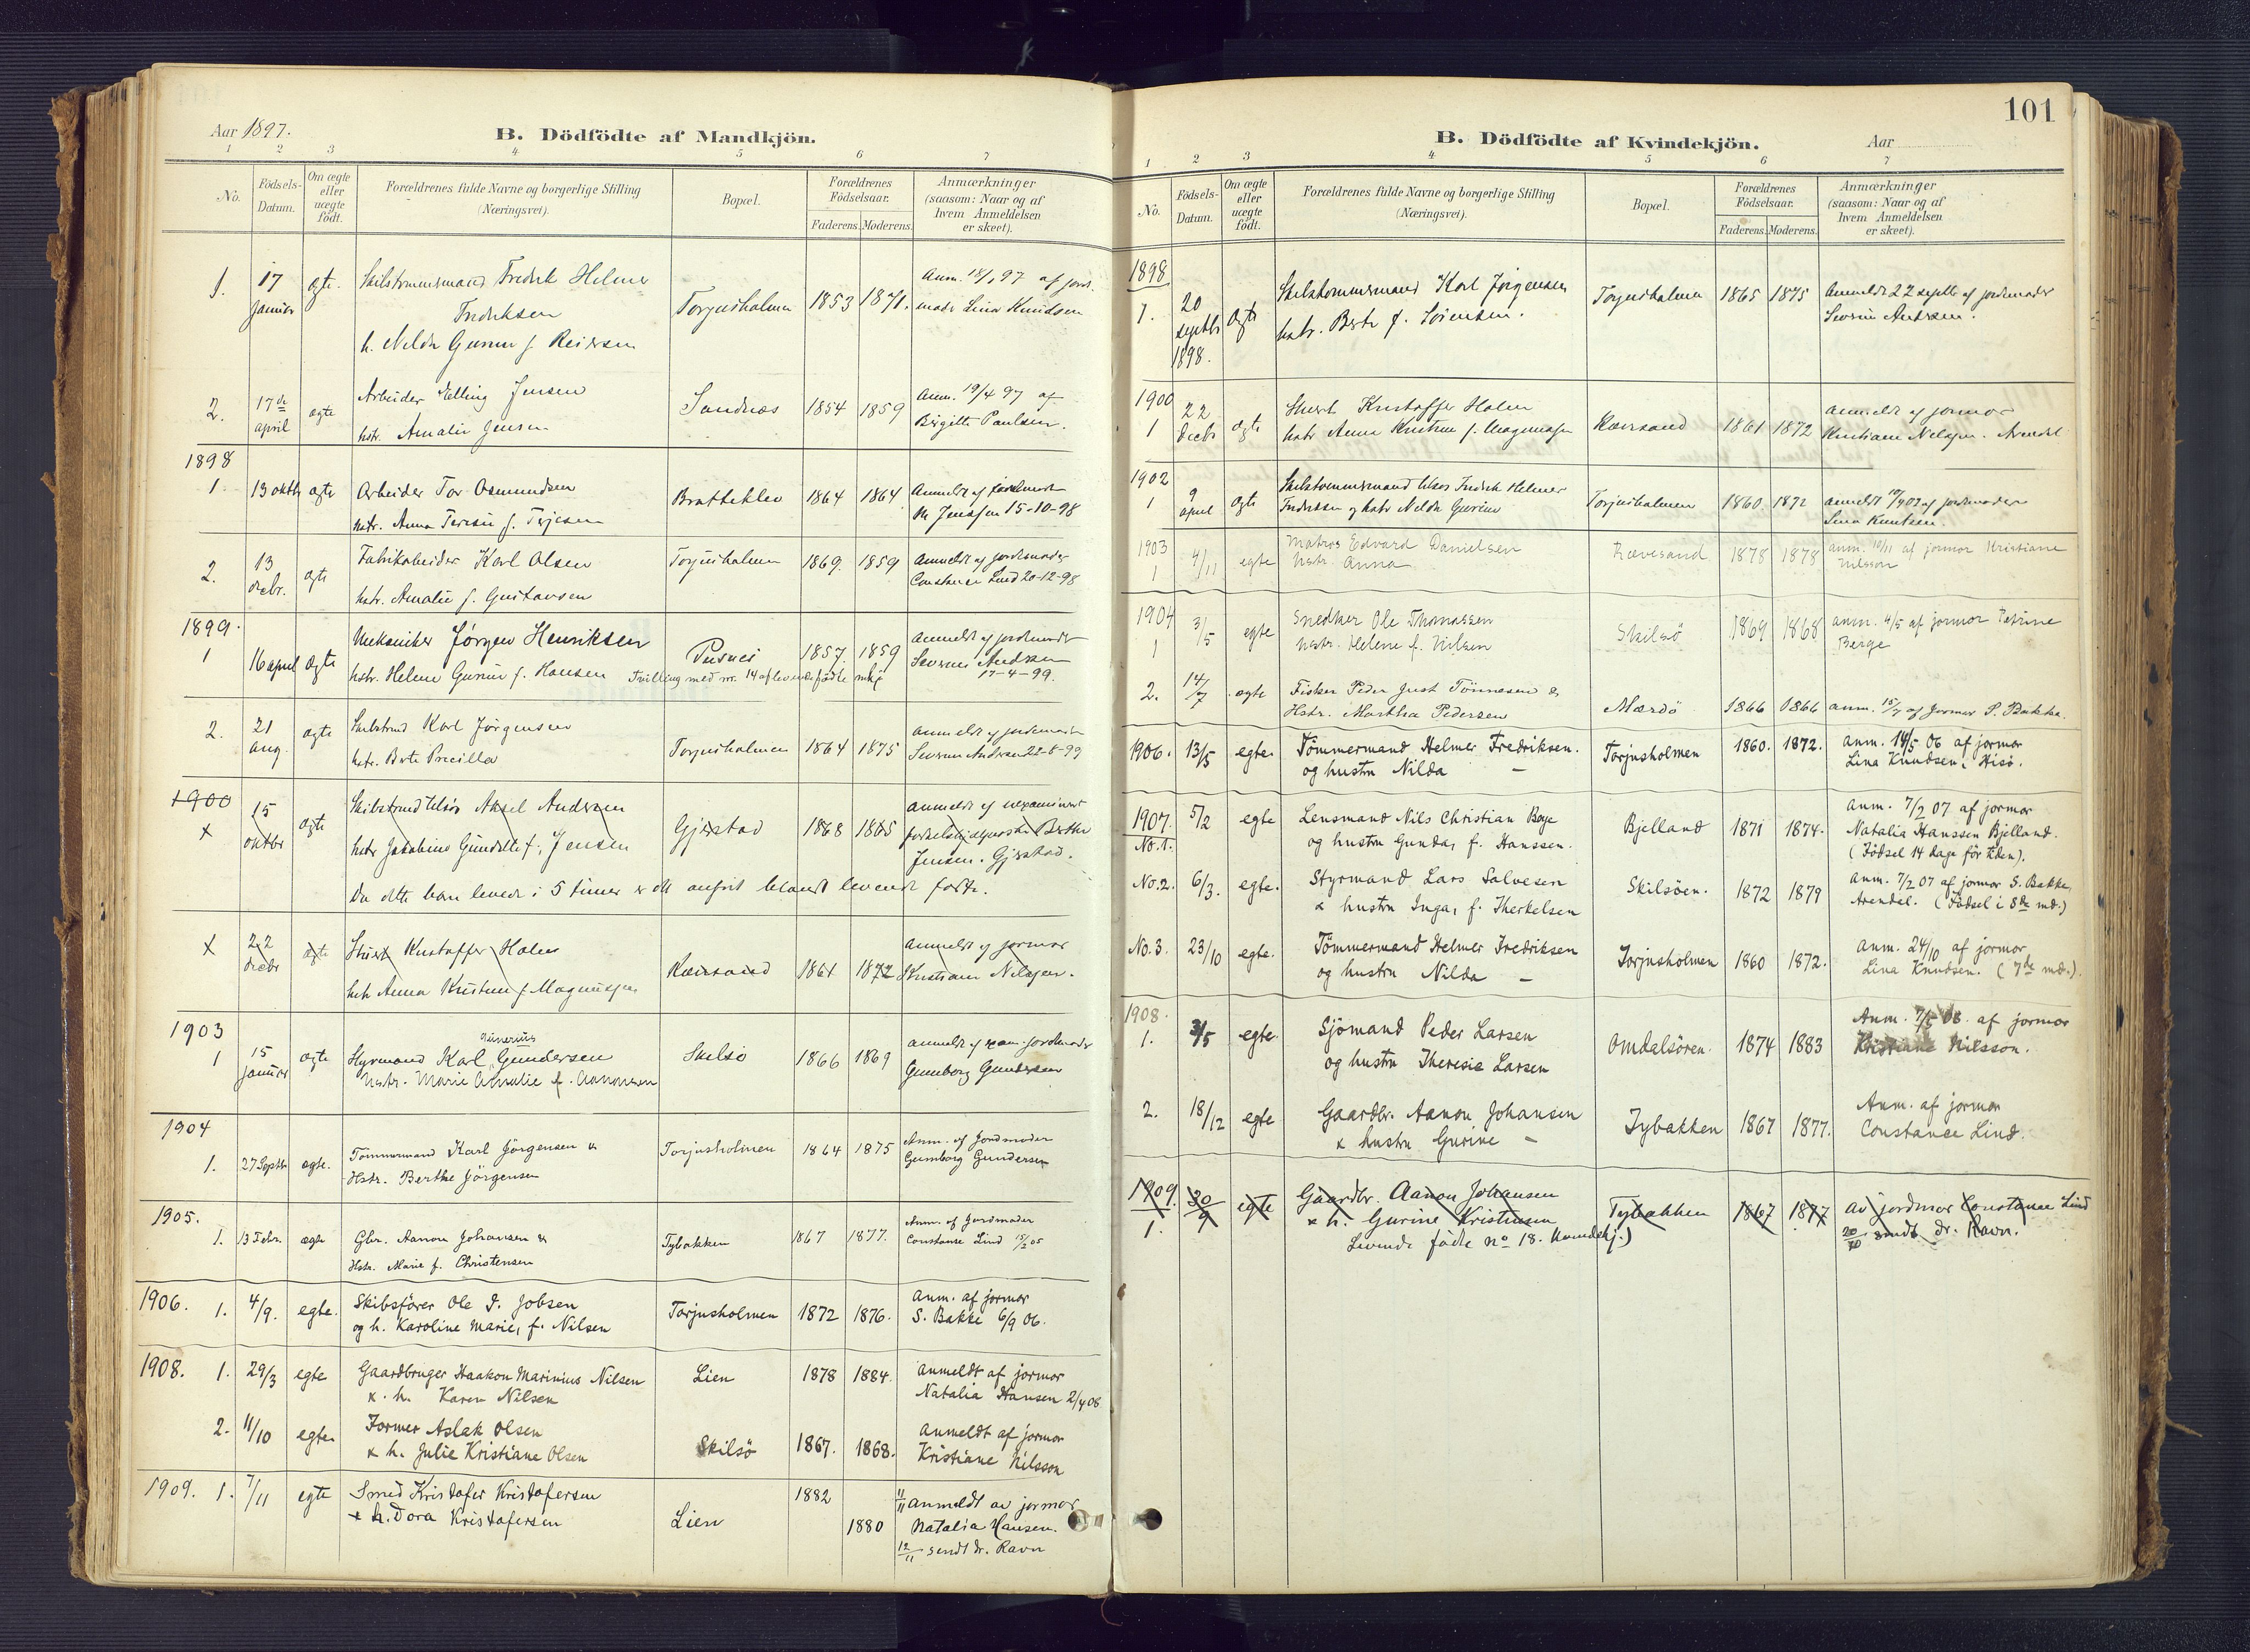 Aar 1897.
B. Dödfödte af Mandkjön.
1 2 3 4 5 6 7
No. Födsels-Datum. Om ægte eller uægte födt. Forældrenes fulde Navne og borgerlige Stilling (Næringsvei). Bopæl. Forældrenes Födselsaar. Faderens. Moderens. Anmærkninger (saasom: Naar og af hvem Anmeldelsen er skeet).
1. 17 ægte. Skibstømmermand Fredrik Helmer Torjusholmen 1853 1871. Anm. 18/1 97 af jord-
januar Fredriksen moder Lina Knudsen
h. Nilda Gurine f. Reiersen
2. 17de april ægte Arbeider Elling Jensen Sandnæs 1854 1859 Anm. 19/4 97 af
hstr. Amalie Jensen Birgitte Paulsen.
1898
1 13 oktb ægte Arbeider Tor Osmundsen Bratteklev 1864 1864 Anmeldt af jordmoder
hstr. Anna Teresie f. Terjesen M. Jenssen 15-10-98
2. 13 decbr. ægte Fabrikarbeider Karl Olsen Torjusholmen 1869 1859 Anmeldt af jordemoder
hstr. Amalie f. Gustavsen Constance Lind 20-12-98
1899.
1 16 april ægte Mekaniker Jörgen Henriksen Pusnes 1857 1859 Anmeldt af jordmoder
hstr. Helene Gurine f. Hansen Severine Andersen
Tvilling med nr. 14 af levende fødte mkj 17-4-99.
2. 21 aug. ægte Skibstmd Karl Jörgensen Torjusholmen 1864 1875 anmeldt af jordemoder
hstr. Berte Precilla Severine Andersen 22-8-99
1900
x 15 oktbr ægte Skibstmd Aksel Andersen Gjerstad 1868 1865 anmeldt af uexamineret
hstr Jakobine Gundelle f. Jensen Berthe
Jensen. Gjerstad.
Da dette barn levede i 5 timer er det anført blandt levende fødte.
x 22 decbr ægte Stuert Kristoffer Holm Rævesand 1861 1872 Anmeldt af jormor
hstr Anna Kristine f. Magnussen Kristiane Nilssen.
1903
Ninerius
1 15 januar ægte Styrmand Karl Gundersen Skilsö 1866 1869 anmeldt af exam. jordemoder
Hstr. Marie Amalie f. Aanonsen Gunborg Gundersen
1904
1. 27 Septb. ægte. Tømmermand Karl Jörgensen & Torjusholmen 1864 1875 Anm. af Jordmoder
Hstr. Berthe Jörgensen Gunborg Gundersen
1905.
1. 13 Febr. ægte Gbr. Aanon Johansen & Tybakken 1867 1877. Anm. af Jordmoder
Hstr. Marie f. Christensen Constance Lind 15/2 05
1906. 1. 4/9. egte. Skibsförer Ole J. Jobsen Torjusholmen 1872 1876. Anm. af jormor
og h. Karoline Marie, f. Nilsen S. Bakke 6/9 06.
1908. 1. 29/3 egte Gaardbruger Haakon Marinius Nilsen Lien 1878 1884. Anmeldt af jormor
x. h. Karen Nilsen Natalia Hansen 2/4 08
2. 11/10 egte. Former Aslak Olsen Skilsö 1867. 1868. Anmeldt af jormor
x h. Julie Kristiane Olsen Kristiane Nilsson
1909. 1. 7/11 egte Smed Kristofer Kristofersen Lien 1882 1880 11/11 anmeldt av jormor
x h. Dora Kristofersen Natalia Hansen.
12/11 sendt dr. Ravn
101
B. Dödfödte af Kvindekjön.
Aar
1 2 3 4 5 6 7
No. Födsels-Datum. Om ægte eller uægte födt. Forældrenes fulde Navne og borgerlige Stilling (Næringsvei). Bopæl. Forældrenes Födselsaar. Faderens. Moderens. Anmærkninger (saasom: Naar og af hvem Anmeldelsen er skeet).
1898
1. 20 septbr 1898. ægte Skibstømmermand Karl Jörgensen Torjusholmen 1865 1875 Anmeldt 22 septb af jordemoder
hstr. Berte f. Sörensen. Severine Andersen.
1900
1 22 decbr ægte Stuert Kristoffer Holm Rævesand 1861 1872 anmeldt af jormor
hstr Anna Kristine f. Magnussen Kristiane Nilssen. Arendal
1902
1 9 april ægte Skibstømmermand Fredrik Helmer Torjusholmen 1860 1872 anmeldt af jordmoder
Fredriksen og hstr Nilda Gurine Lina Knutsen.
1903
1 4/11 egte Matros Edvard Danielsen Rævesand 1878 1878 anm. 10/11 af jormor Kristiane
hstr. Anna Nilsson
1904
1 3/5 egte Snedker Ole Thomassen Skilsö 1869 1868 anm. 4/5 af jormor Petrine
hstr. Helene f. Nilsen Berge
2. 14/7 egte Fisker Peder Just Tönnesen & Mærdö 1866 1866 anm. 15/7 af Jormor P. Bakke.
Hstr. Martha Pedersen
1906. 13/5 egte. Tömmermand Helmer Fredriksen. Torjusholmen 1860. 1872. anm. 14/5 06 af jormor
og hustru Nilda — Lina Knudsen, Hisö.
1907. No. 1. 5/2 egte Lensmand Nils Christian Bøye Bjelland 1871 1874. Anm. 7/2 07 af jormor
og hustru Gunda, f. Hanssen. Natalia Hanssen Bjelland.
(Födsel 14 dage för tiden).
No. 2. 6/3. egte. Styrmand Lars Salvesen Skilsöen. 1872 1879 anm. 7/2 07 af jormor S. Bakke,
x hustru Inga, f. Therkelsen Arendal. (Födsel i 8de md.)
No. 3. 23/10 egte. Tömmermand Helmer Fredriksen Torjusholmen 1860 1872. anm. 24/10 af jormor
og hustru Nilda — Lina Knudsen. (7de md.).
1908.
1. 3/5 egte. Sjömand Peder Larsen Omdalsören. 1874 1883 Anm. 08. af jormor
og hustru Theresie Larsen Kristiane Nilsson.
2. 18/12 egte Gaardbr. Aanon Johansen Tybakken 1867 1877. Anm. af jormor
x hustru Gurine — Constance Lind.
1909. 1. 20/9 egte Gaardbr. Aanon Johansen Tybakken 1867 1877 av jordmor Constance Lind
x h. Gurine Kristensen 20/10 sendt dr. Ravn.
Levende fødte no 18. kvindekj.)